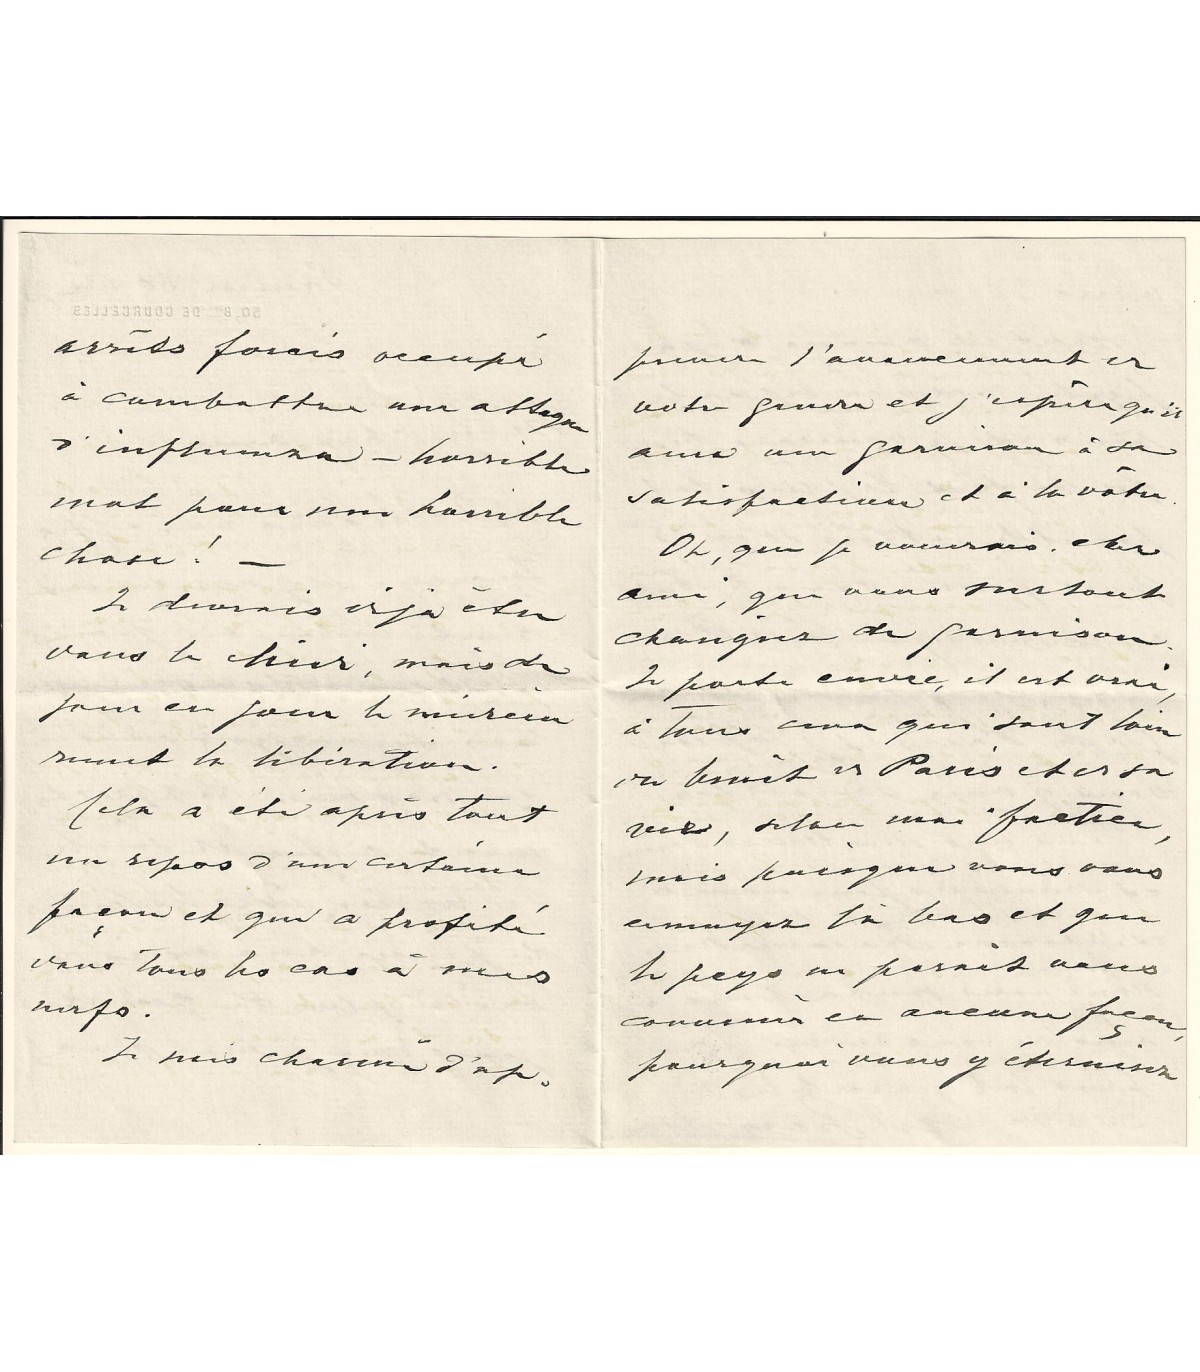 50, Bd DE COURCELLES
arrêts forcés occupé
à combattre une attaque
d'influenza – horrible
mot pour une horrible
chose ! —
Je devrais déjà être
dans le Midi, mais de
jour en jour le médecin
remet la libération.
Cela a été après tout
un repos d'une certaine
façon et qui a profité
dans tous les cas à mes
nerfs.
Je suis charmé d'ap-
prendre l'avancement de
votre gendre et j'espère qu'il
aura une garnison à sa
satisfaction et à la vôtre.
Oh, que je voudrais, cher
ami, que vous surtout
changiez de garnison.
Je porte envie, il est vrai,
à tous ceux qui sont loin
du bruit de Paris et de sa
vie, selon moi factice,
mais puisque vous vous
ennuyez là bas et que
le pays ne paraît vous
convenir en aucune façon,
pourquoi vous y éterniser